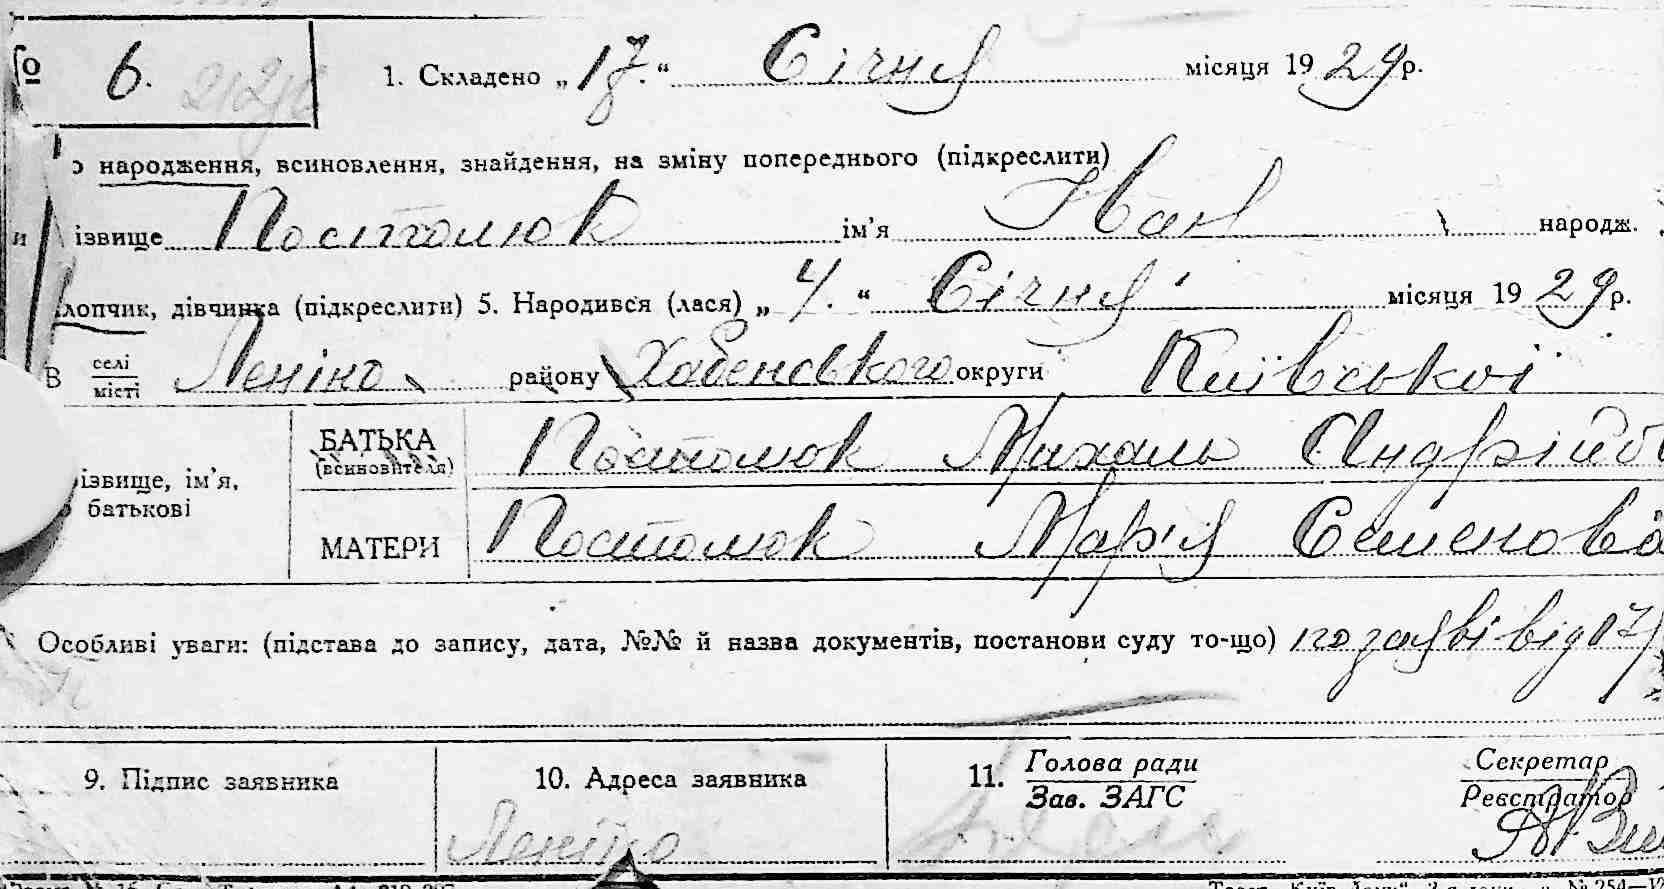 № 6. 1. Складено „17.“ Січня місяця 1929 р.
о народження, всиновлення, знайдення, на зміну попереднього (підкреслити)
ізвище Постолюк ім’я Іван народж.
лопчик, дівчинка (підкреслити) 5. Народився (лася) „4.“ Січня місяця 1929 р.
В селі/місті Леніно району Хабенського округи Київської
БАТЬКА (всиновителя) Постолюк Михаль Андрійов
різвище, ім’я, по батькові
МАТЕРИ Постолюк Мар'я Семенова
Особливі уваги: (підстава до запису, дата, №№ й назва документів, постанови суду то-що) по заяві від 17/
9. Підпис заявника 10. Адреса заявника 11. Голова ради/Зав. ЗАГС Секретар/Реєстратор
Леніно